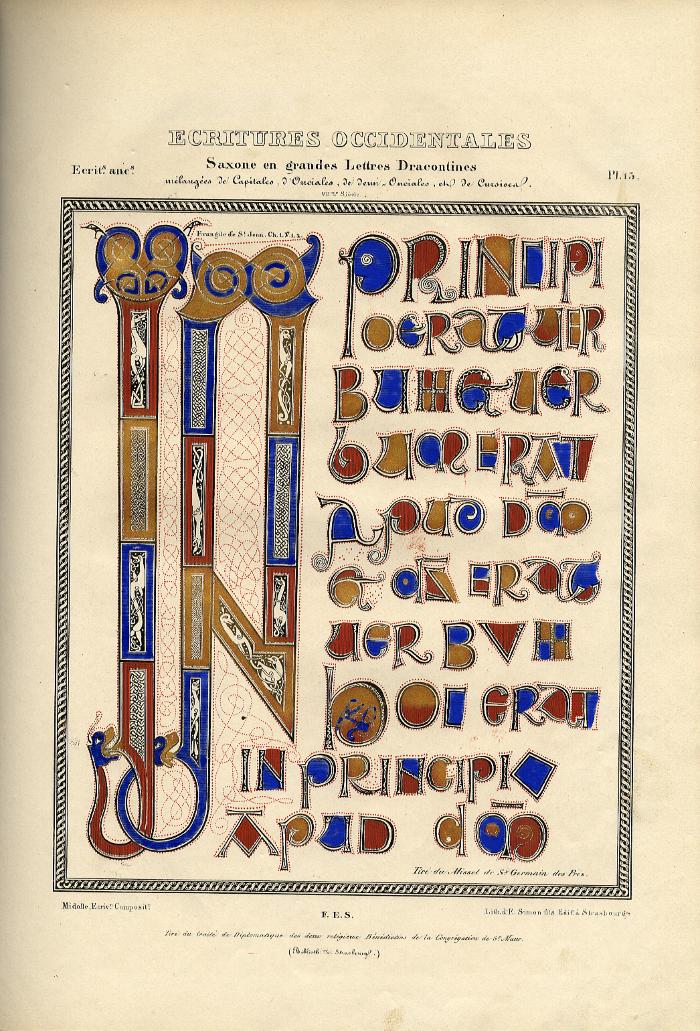 ECRITURES OCCIDENTALES
Saxone en grandes Lettres Dracontines
Ecrit.s anc.s
Pl.15.
mélangées de Capitales, d'Onciales, de demi-Onciales, et de Cursives.
VIII.me Siècle.
Evangile de S.t Jean. Ch. I. V. 1. 2.
IN PRINCIPI
O ERAT UER
BUM ET UER
BUM ERAT
APUD DM
ET DS ERAT
UERBVM
HOC ERAT
IN PRINCIPIO
APUD DM
Tiré du Missel de S.t Germain des Prés.
Midolle, Ecriv.n Composit.r
F. E. S.
Lith. d'E. Simon fils Edit.r à Strasbourg.
Tiré du traité de Diplomatique des deux religieux Bénédictins de la Congrégation de S.t Maur.
(Biblioth. de Strasbourg.)